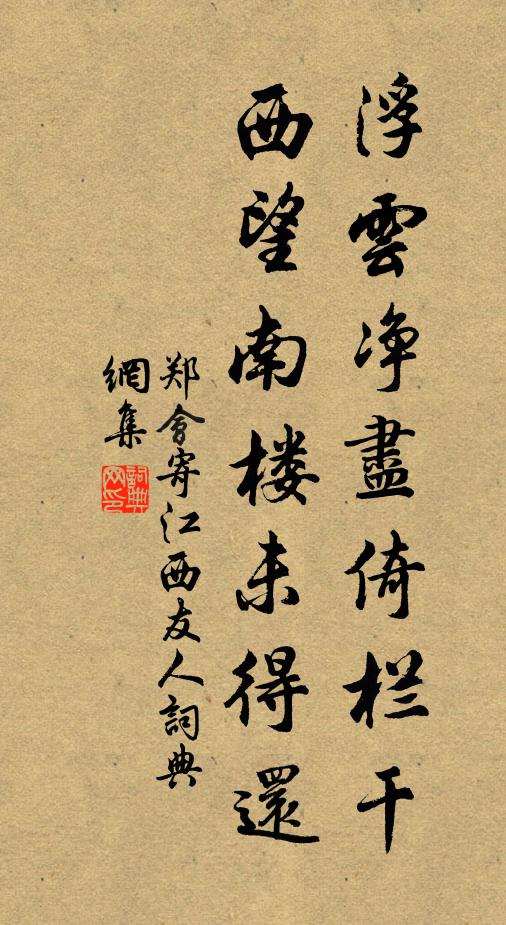 浮雲净盡倚栏干
西望南楼未得還
郑會寄江西友人詞典
網集
詞典网印